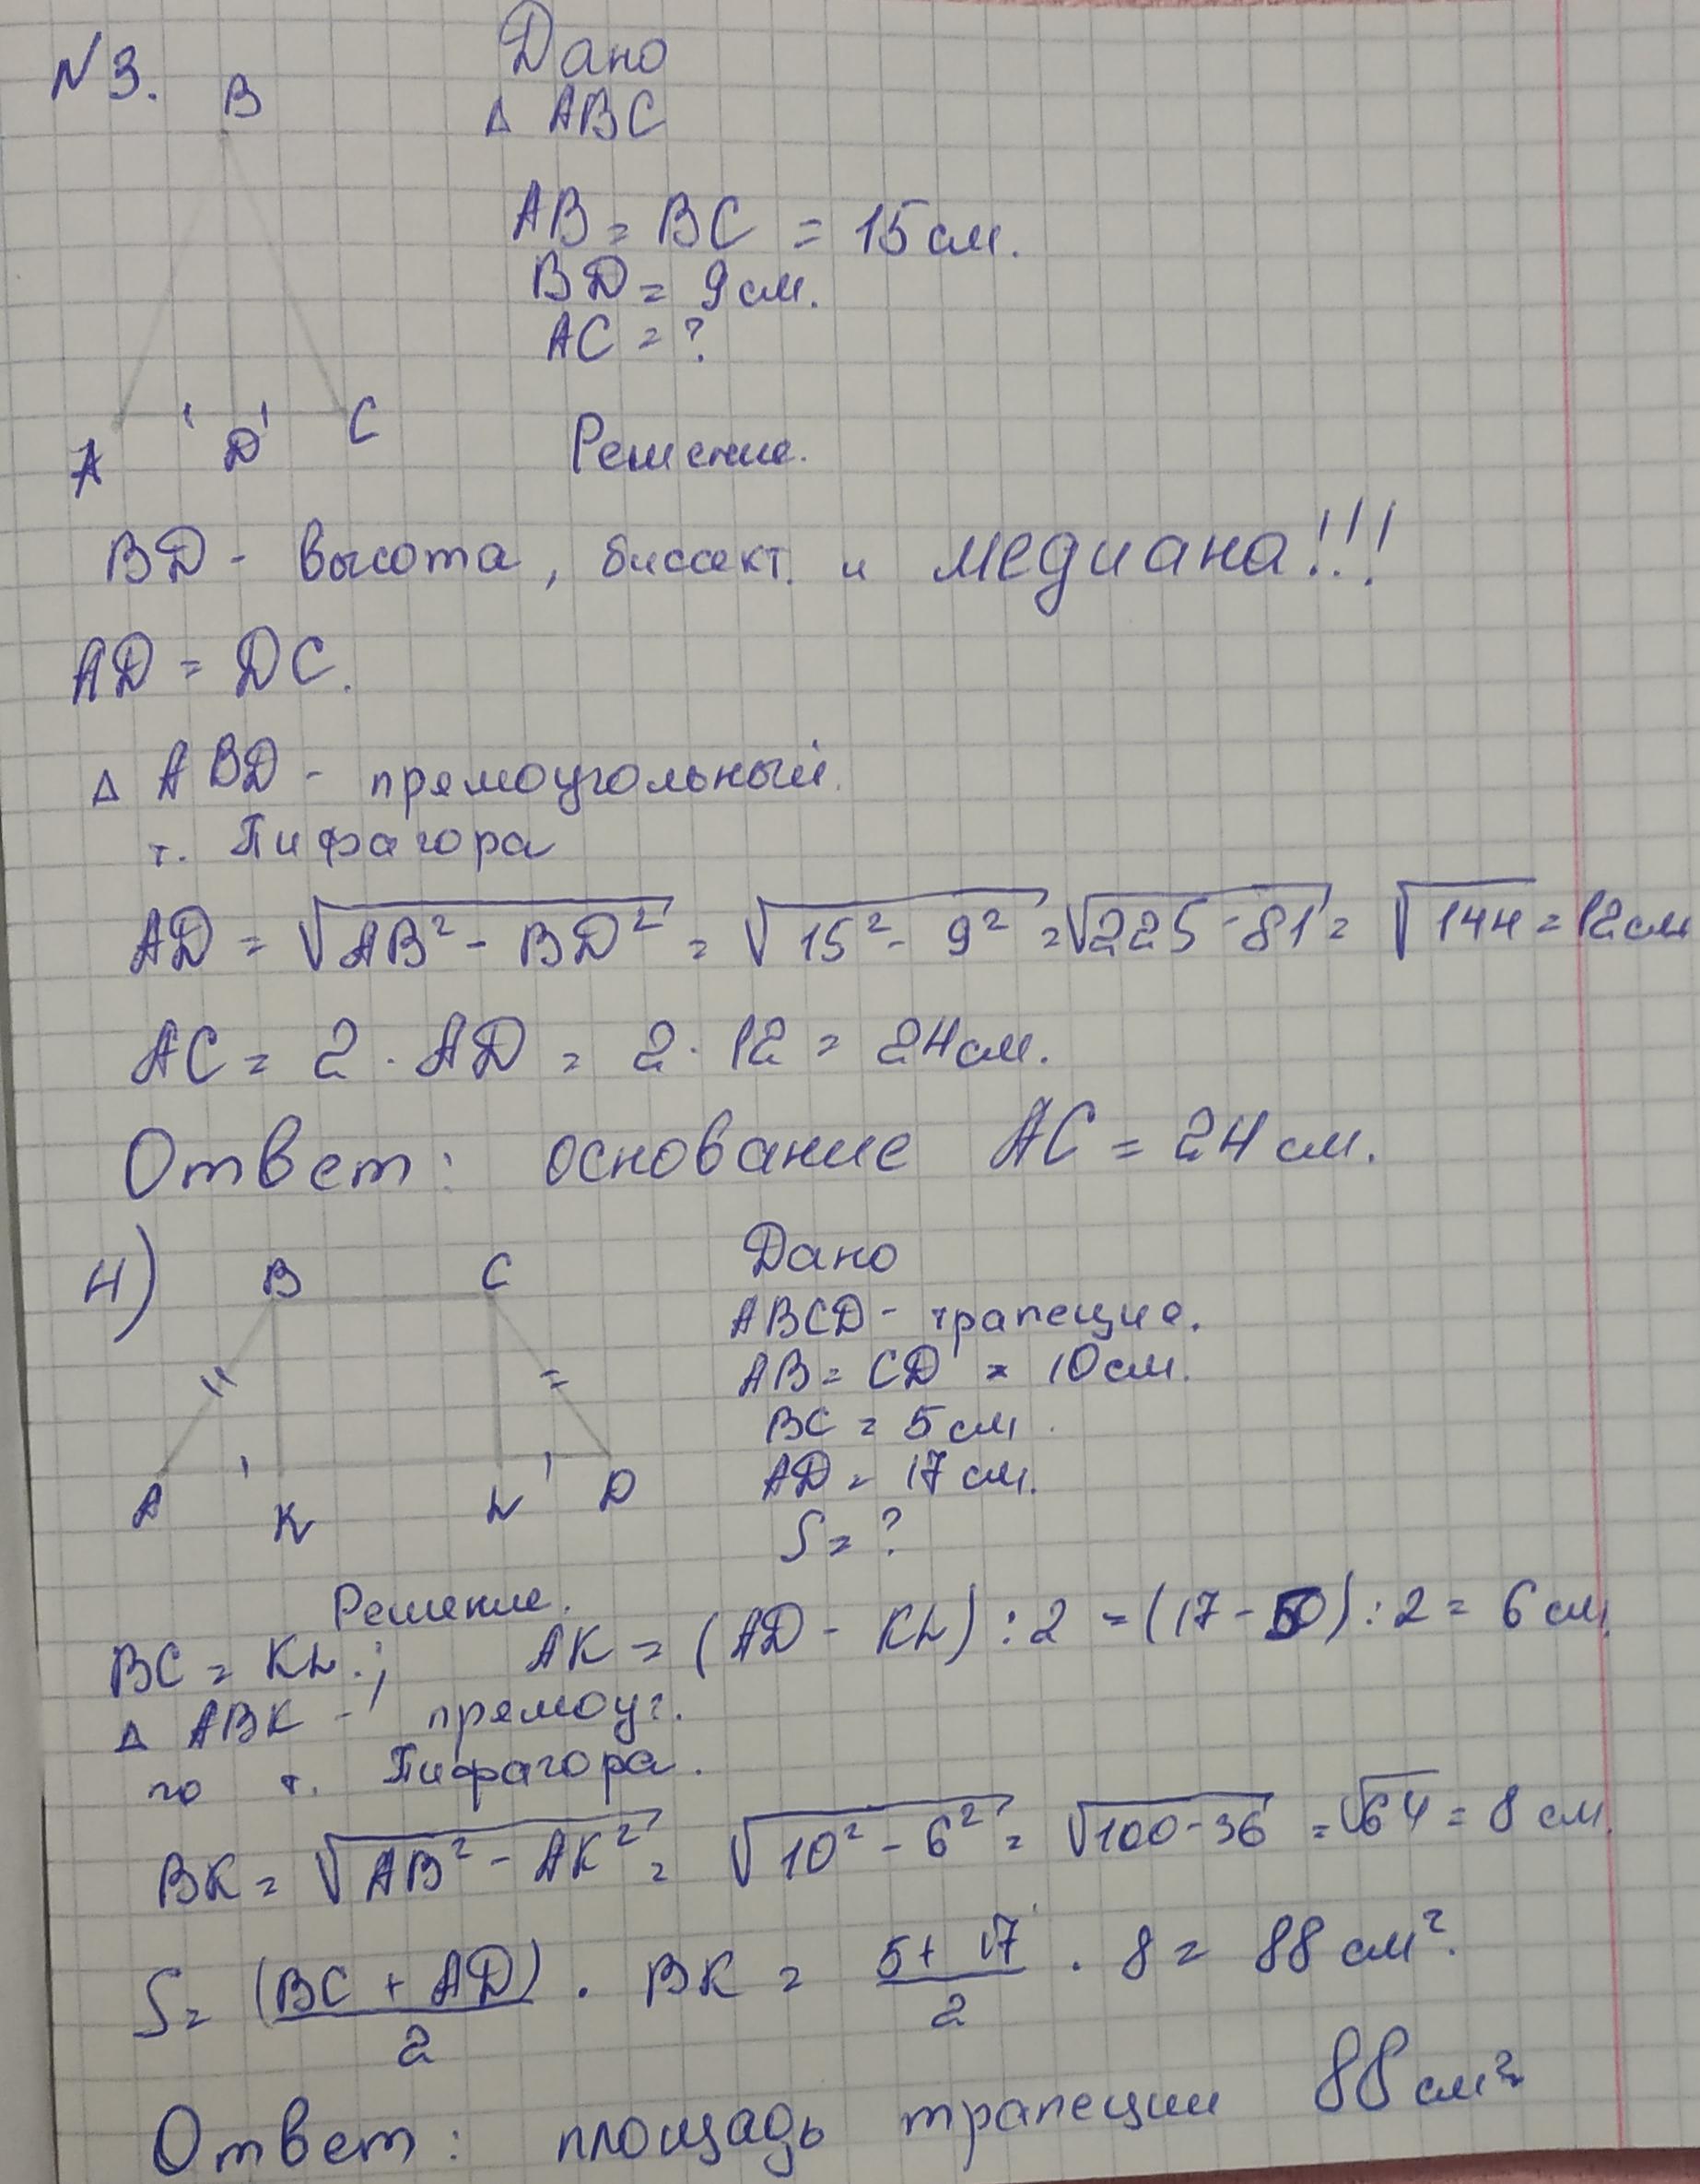 N3.
Дано
B
Δ ABC
AB = BC = 15 см.
BD = 9 см.
AC = ?
A D C
Решение.
BD - высота, биссект. и медиана!!!
AD = DC.
Δ ABD - прямоугольный.
т. Пифагора
AD = √AB² - BD² = √15² - 9² = √225 - 81 = √144 = 12 см
AC = 2 · AD = 2 · 12 = 24 см.
Ответ: основание AC = 24 см.
4)
B C
Дано
ABCD - трапеция.
AB = CD = 10 см.
BC = 5 см.
AD = 17 см.
A K L D
S = ?
Решение.
BC = KL.; AK = (AD - KL) : 2 = (17 - 5) : 2 = 6 см.
Δ ABK - прямоуг.
по т. Пифагора.
BK = √AB² - AK² = √10² - 6² = √100 - 36 = √64 = 8 см.
S = (BC + AD)/2 · BK = 5 + 17/2 · 8 = 88 см².
Ответ: площадь трапеции 88 см²